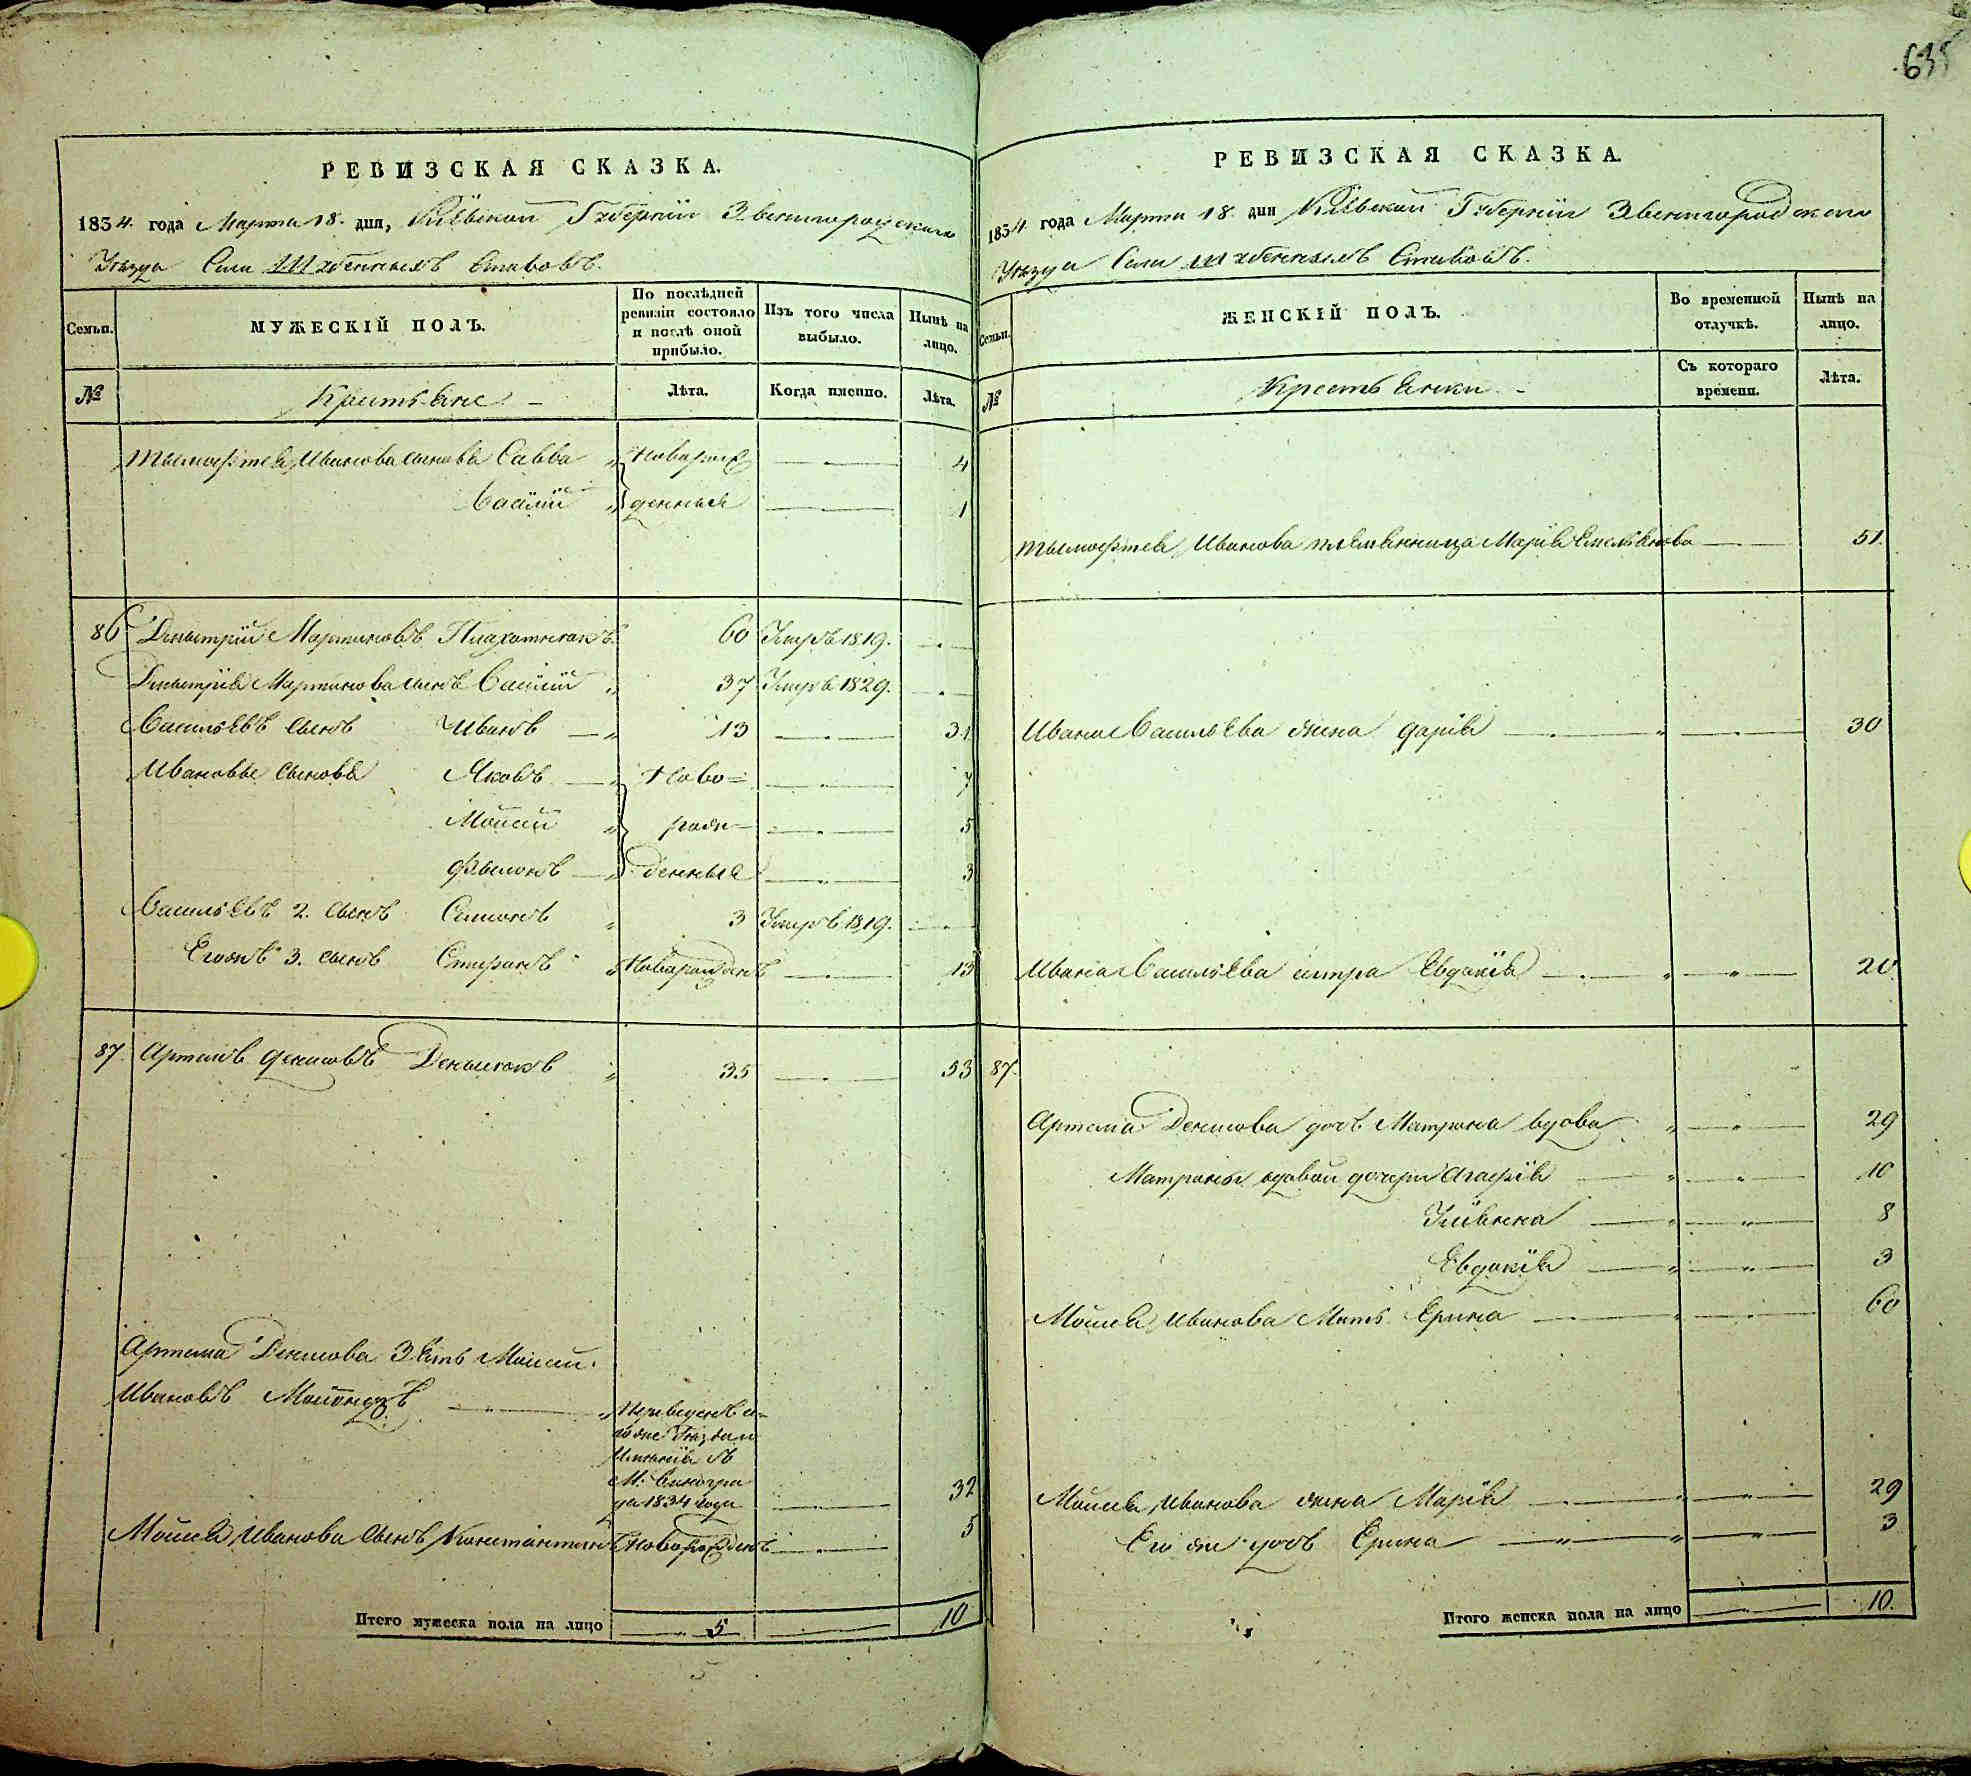 635
РЕВИЗСКАЯ СКАЗКА.
1834. года Марта 18. дня, Кіевской Губерніи Звенигородскаго
Уѣзда Села Шубенныхъ Ставовъ.
Семьи.
МУЖЕСКІЙ ПОЛЪ.
По послѣдней ревизіи состояло и послѣ оной прибыло.
Изъ того числа выбыло.
Нынѣ на лицо.
№
Крестьяне
Лѣта.
Когда именно.
Лѣта.
Тымофтея Иванова сыновья Савва Новорож 4
Василій денныя 1
86 Дмытрій Мартиновъ 60 Умръ 1819.
Дмытрія Мартинова сынъ Василій 37 Умръ 1829.
Васильевъ сынъ Иванъ 13 31
Ивановы сыновья Яковъ Ново= 7
Мойсей рож= 5
Фылонъ денныя 3
Васильевъ 2. сынъ Симонъ 3 Умръ 1819.
Егожъ 3. сынъ Стефанъ Новорожденъ 15
87. Артемъ Денисовъ 35 53
Артема Денисова Зять Мойсей
Ивановъ
Переведенъ
имѣнія въ
М. Виногра
да 1834 года 32
Мойсея Иванова Сынъ Константинъ Новорожденъ 5
Итого мужеска пола на лицо 5 10
5
РЕВИЗСКАЯ СКАЗКА.
1834. года Марта 18. дня Кіевской Губерніи Звенигородскаго
Уѣзда Села Шубенныхъ Ставовъ.
Семьи.
ЖЕНСКІЙ ПОЛЪ.
Во временной отлучкѣ.
Нынѣ на лицо.
№
Крестьянки
Съ котораго времени.
Лѣта.
Тымофтея Иванова племянница Марія Емельянова 51.
Ивана Васильева жена Дарія 30
Ивана Васильева сестра Евдокія 20
87.
Артема Денисова дочь Матрона вдова 29
Матроны вдовой дочери Агафія 10
Уліянна 8
Евдокія 3
Мойсея Иванова Мать Ерина 60
Мойсея Иванова жена Марія 29
Его же дочь Ерина 3
Итого женска пола на лицо 10.